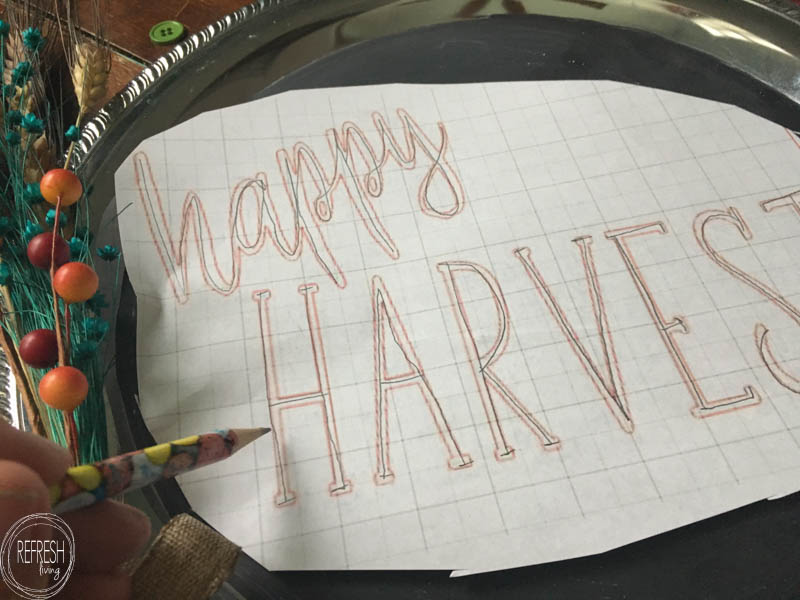 happy
HARVEST
REFRESH
living